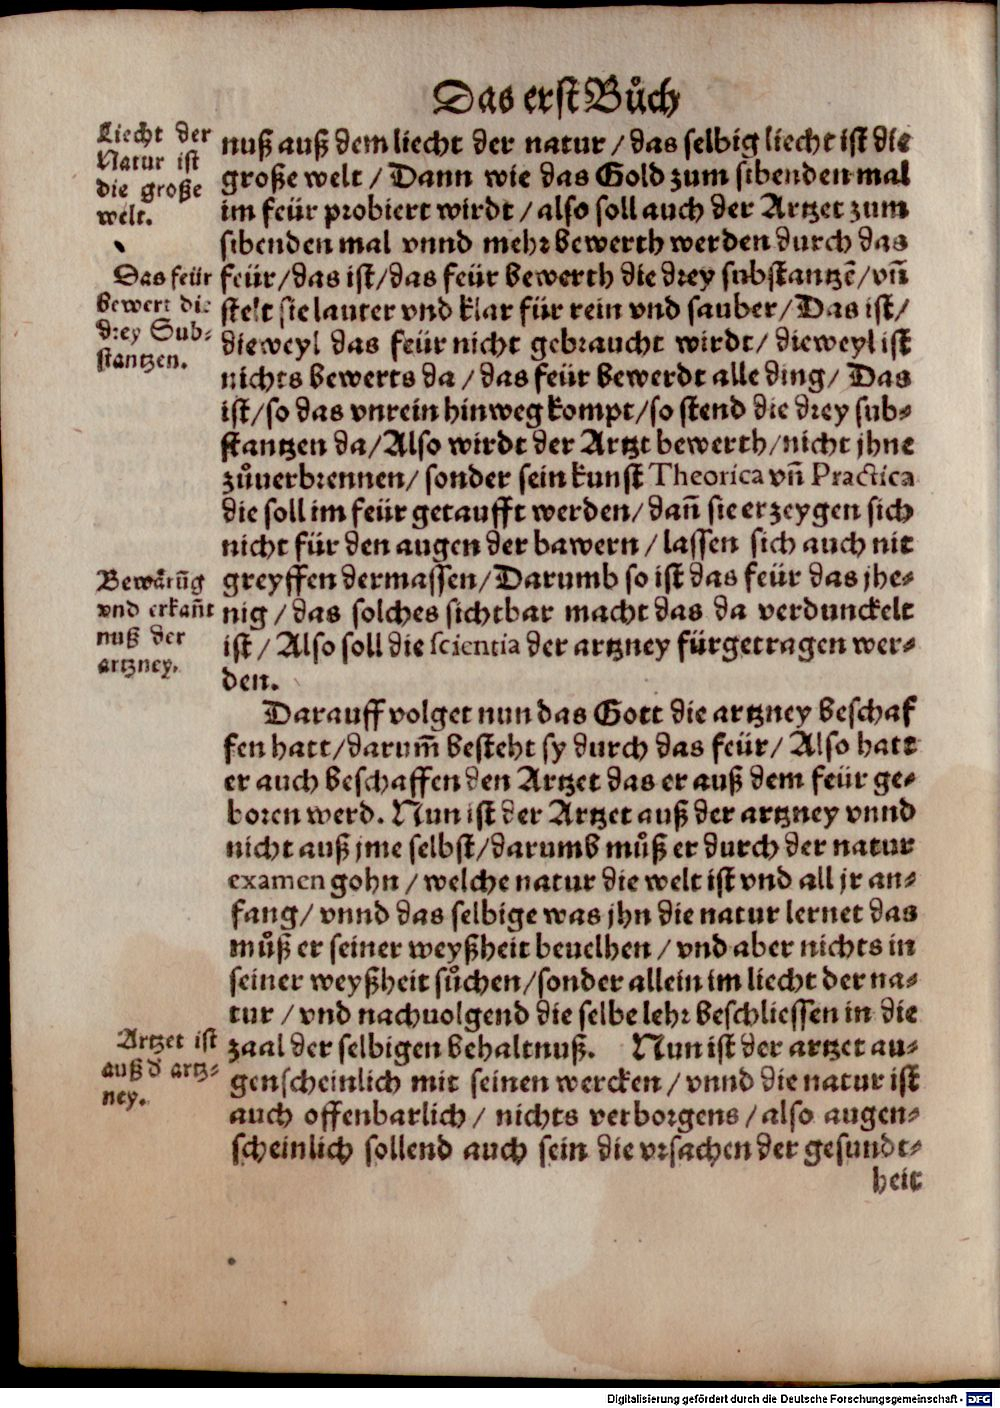 Das erst Bůch
Liecht der
Natur ist
die große
welt.
Das feür
bewert die
drey Sub-
stantzen.
Bewärũg
vnd erkañt
nuß der
artzney.
Artzet ist
auß d artz-
ney.
nuß auß dem liecht der natur / das selbig liecht ist die
große welt / Dann wie das Gold zum sibenden mal
im feür probiert wirdt / also soll auch der Artzet zum
sibenden mal vnnd mehr bewerth werden durch das
feür/das ist/das feür bewerth die drey substantzẽ/vñ
stelt sie lauter vnd klar für rein vnd sauber/Das ist/
dieweyl das feür nicht gebraucht wirdt/ dieweyl ist
nichts bewerts da / das feür bewerdt alle ding/ Das
ist/so das vnrein hinweg kompt/so stend die drey sub-
stantzen da/Also wirdt der Artzt bewerth/nicht jhne
zůuerbrennen/ sonder sein kunst Theorica vñ Practica
die soll im feür getaufft werden/dañ sie erzeygen sich
nicht für den augen der bawern / lassen sich auch nit
greyffen dermassen/Darumb so ist das feür das jhe-
nig / das solches sichtbar macht das da verdunckelt
ist / Also soll die scientia der artzney fürgetragen wer-
den.
Darauff volget nun das Gott die artzney beschaf
fen hatt/darum̃ besteht sy durch das feür/ Also hatt
er auch beschaffen den Artzet das er auß dem feür ge-
boren werd. Nun ist der Artzet auß der artzney vnnd
nicht auß jme selbst/darumb můß er durch der natur
examen gohn / welche natur die welt ist vnd all jr an-
fang/ vnnd das selbige was jhn die natur lernet das
můß er seiner weyßheit beuelhen / vnd aber nichts in
seiner weyßheit sůchen/sonder allein im liecht der na-
tur / vnd nachuolgend die selbe lehr beschliessen in die
zaal der selbigen behaltnuß. Nun ist der artzet au-
genscheinlich mit seinen wercken / vnnd die natur ist
auch offenbarlich / nichts verborgens / also augen-
scheinlich sollend auch sein die vrsachen der gesundt-
heit
Digitalisierung gefördert durch die Deutsche Forschungsgemeinschaft - DFG